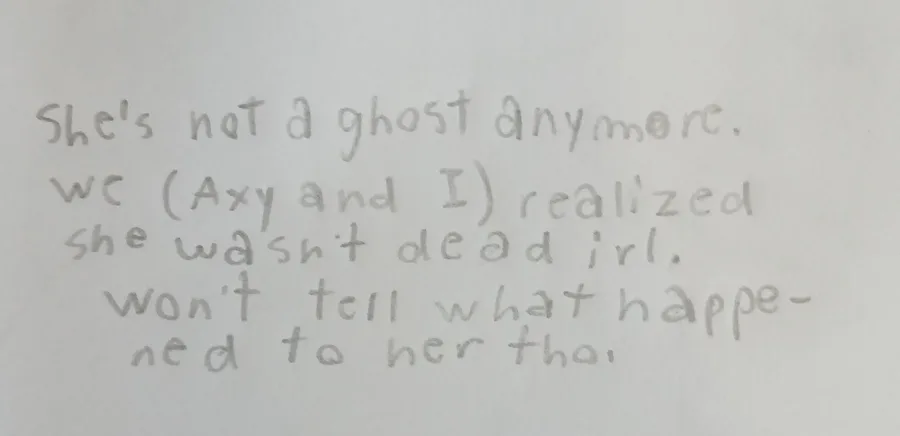 She's not a ghost anymore.
we (Axy and I) realized
she wasn't dead irl.
won't tell what happe-
ned to her tho.